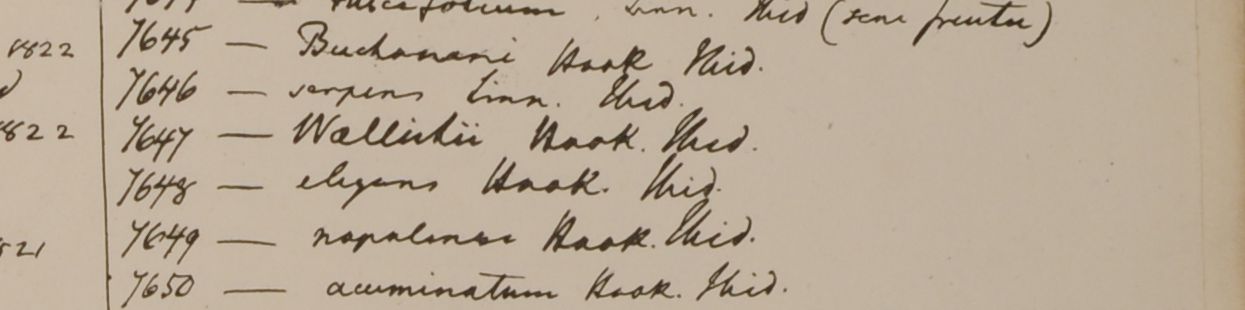 — ruscifolium. Linn. Ibid (sine fructu)
1822 7645 — Buchanani Hook Ibid.
7646 — serpens Linn. Ibid.
1822 7647 — Wallichii Hook. Ibid.
7648 — elegans Hook. Ibid.
7649 — napalense Hook. Ibid.
21 7650 — acuminatum Hook. Ibid.